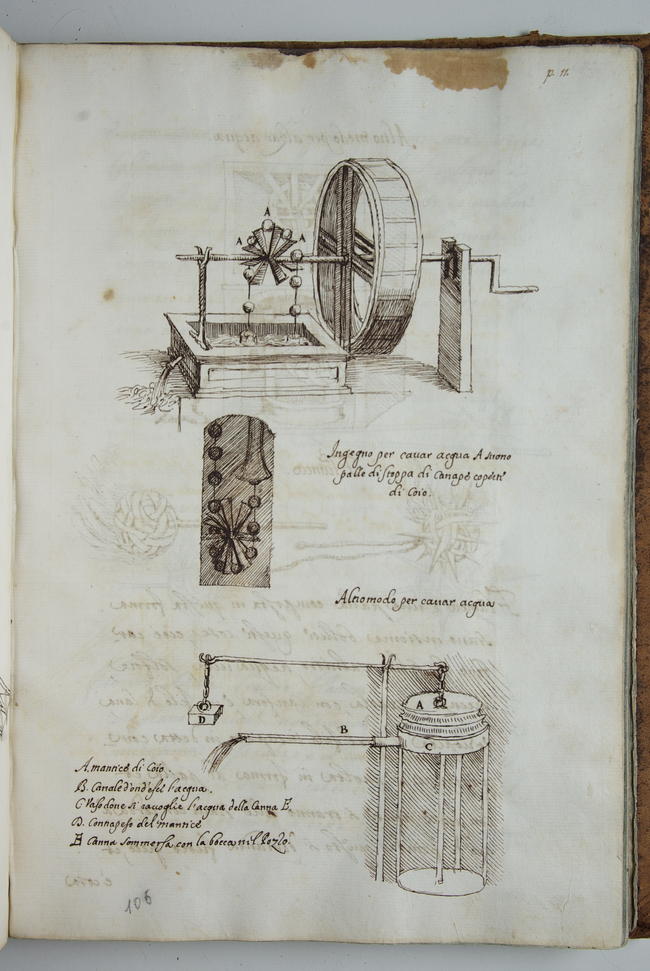 p. 11.
A
A
A
Ingegno per cauar acqua A suono
palle di stoppa di Canape coperte
di Coio.
Altro modo per cauar acqua
A
B
C
D
A. mantice di Coio.
B. Canale d'ond'esce l'acqua.
C Vaso doue si racoglie l'acqua della Canna E.
D. Contrapeso del mantice
E Canna sommersa con la bocca nil Pozzo.
106